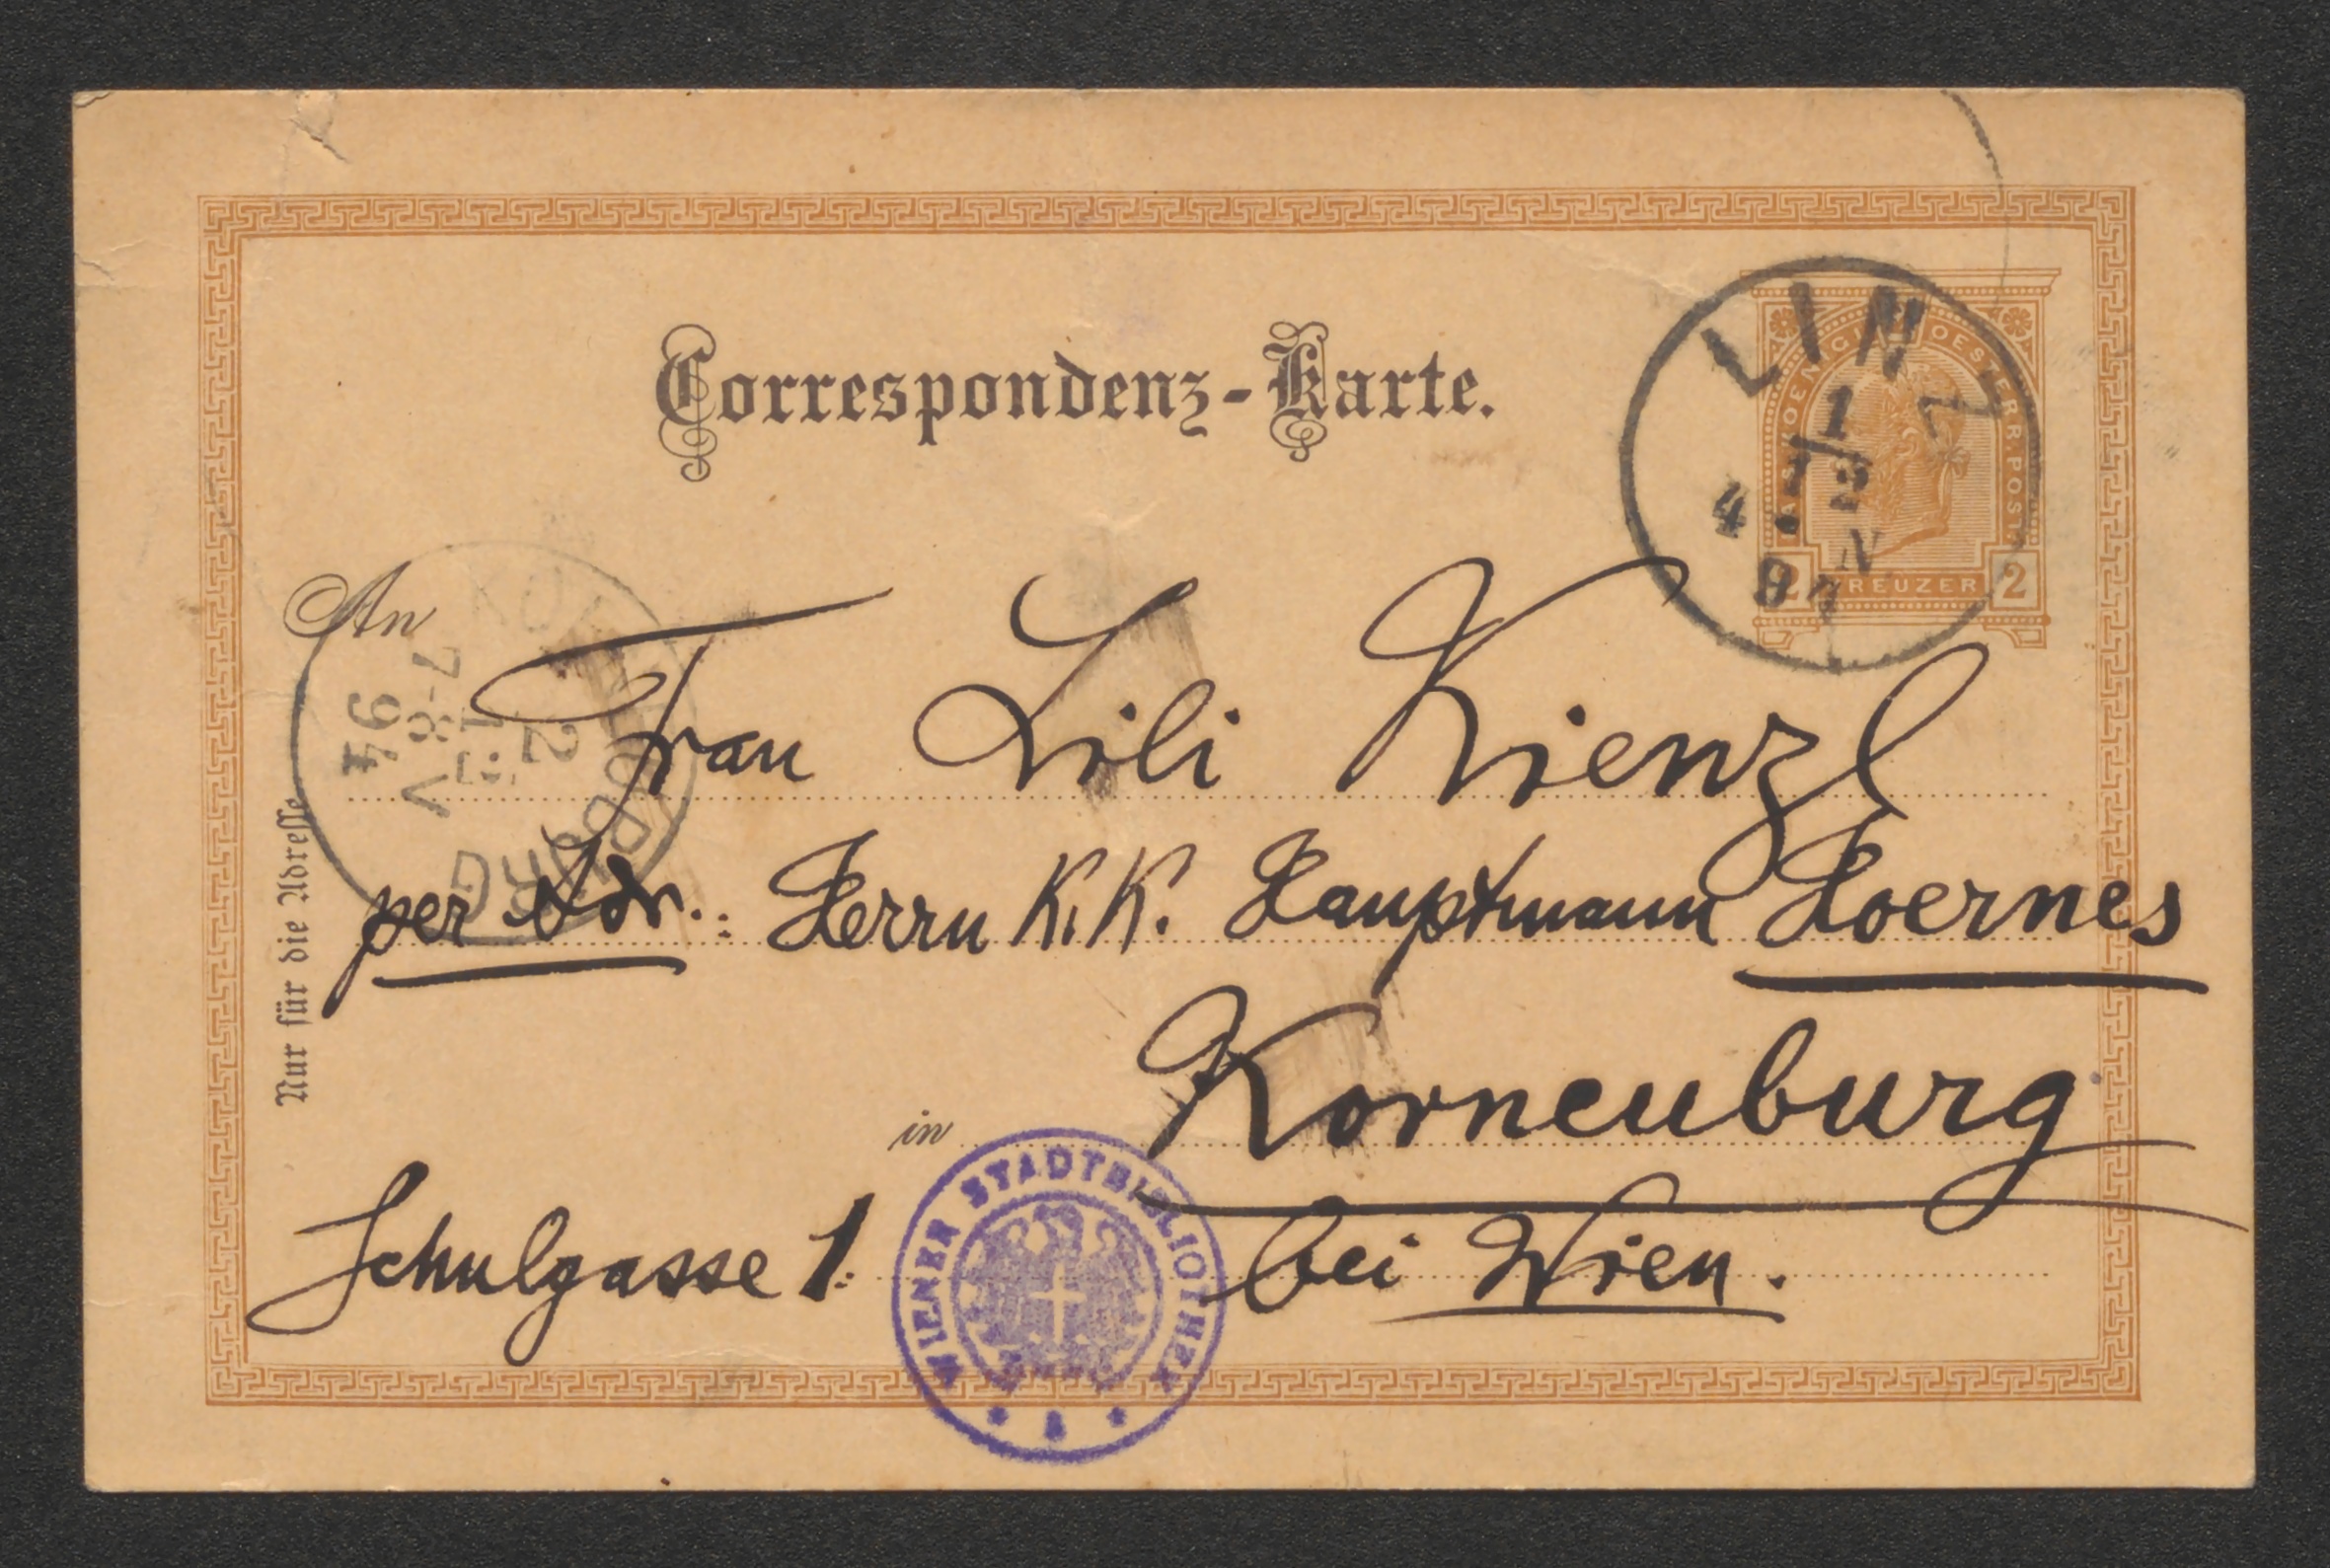 Correspondenz-Karte.
LINZ
1
12
4 N
94
2 KREUZER 2
An
Frau Lili Kienzl
per Adr.: Herrn K.K. Hauptmann Hoernes
in Korneuburg
Schulgasse 1. bei Wien.
Nur für die Adresse
2
12
7-8 V
94
WIENER STADTBIBLIOTHEK